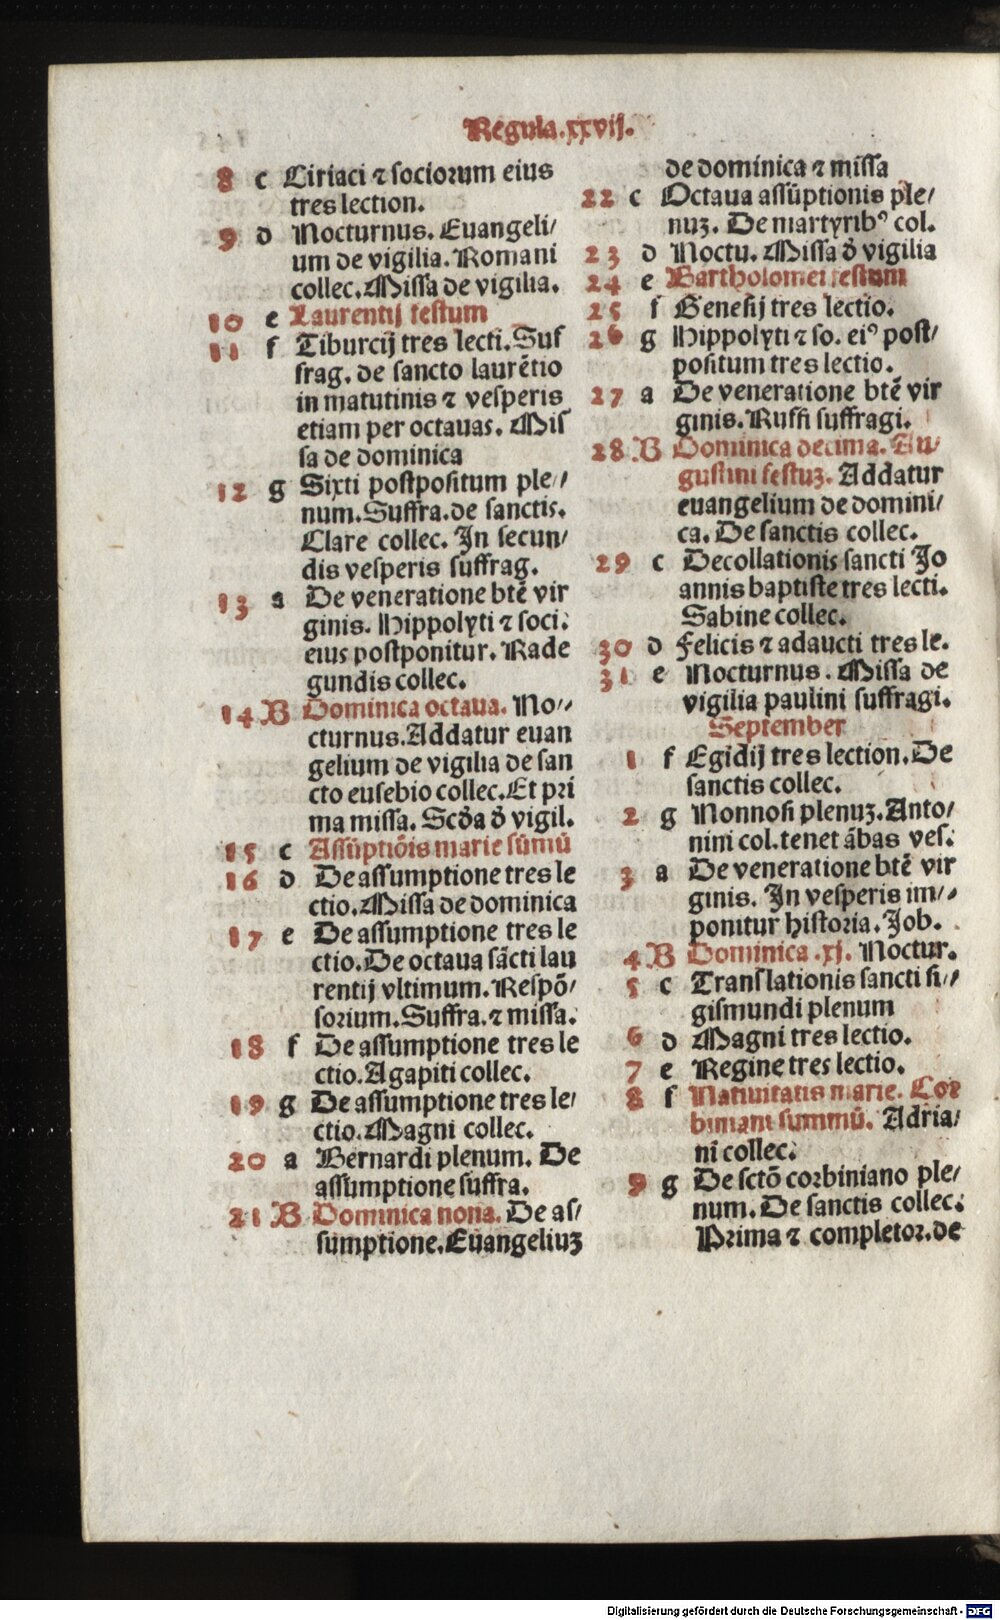 Regula.xxvij.
8 c Ciriaci ⁊ sociorum eius
tres lection.
9 d Nocturnus. Euangeli/
um de vigilia. Romani
collec. Missa de vigilia.
10 e Laurentij festum
11 f Tiburcij tres lecti. Suf
frag. de sancto laurētio
in matutinis ⁊ vesperis
etiam per octauas. Mis
sa de dominica
12 g Sixti postpositum ple//
num. Suffra. de sanctis.
Clare collec. In secun/
dis vesperis suffrag.
13 a De veneratione btē vir
ginis. Hippolyti ⁊ soci.
eius postponitur. Rade
gundis collec.
14 B Dominica octaua. No//
cturnus. Addatur euan
gelium de vigilia de san
cto eusebio collec. Et pri
ma missa. Scd̄a d̄ vigil.
15 c Assūptiōis marie sūmū
16 d De assumptione tres le
ctio. Missa de dominica
17 e De assumptione tres le
ctio. De octaua sācti lau
rentij vltimum. Respō/
sorium. Suffra. ⁊ missa.
18 f De assumptione tres le
ctio. Agapiti collec.
19 g De assumptione tres le/
ctio. Magni collec.
20 a Bernardi plenum. De
assumptione suffra.
21 B Dominica nona. De as/
sumptione. Euangeliuʒ
de dominica ⁊ missa
22 c Octaua assūptionis ple/
nuʒ. De martyribꝰ col.
23 d Noctu. Missa d̄ vigilia
24 e Bartholomei festum
25 f Genesij tres lectio.
26 g Hippolyti ⁊ so. eiꝰ post/
positum tres lectio.
27 a De veneratione btē vir
ginis. Ruffi suffragi.
28 B Dominica decima. Au/
gustini festuʒ. Addatur
euangelium de domini/
ca. De sanctis collec.
29 c Decollationis sancti Jo
annis baptiste tres lecti.
Sabine collec.
30 d Felicis ⁊ adaucti tres le.
31 e Nocturnus. Missa de
vigilia paulini suffragi.
September
1 f Egidij tres lection. De
sanctis collec.
2 g Nonnosi plenuʒ. Anto/
nini col. tenet ābas ves.
3 a De veneratione btē vir
ginis. In vesperis im//
ponitur historia. Job.
4 B Dominica .xj. Noctur.
5 c Translationis sancti si//
gismundi plenum
6 d Magni tres lectio.
7 e Regine tres lectio.
8 f Natiuitatis marie. Cor
biniani summū. Adria/
ni collec.
9 g De sctō corbiniano ple/
num. De sanctis collec.
Prima ⁊ completor. de
Digitalisierung gefördert durch die Deutsche Forschungsgemeinschaft - DFG